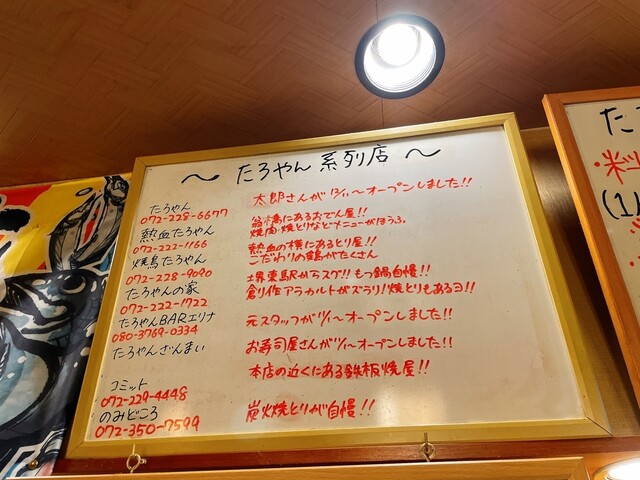 〜 たろやん 系列店 〜
たろやん
072-228-6677
熱血たろやん
072-222-1166
焼鳥たろやん
072-228-9090
たろやんの家
072-222-1722
たろやんBARエリナ
080-3769-0334
たろやんざんまい
コミット
072-229-4448
のみどころ
072-350-7599
太郎さんが 〜オープンしました!!
にあるおでん屋!!
焼肉・焼とりなどメニューがほうふ。
熱血の横にあるとり屋!!
こだわりの鶏がたくさん
堺東駅からスグ!! もつ鍋自慢!!
創り作アラカルトがズラリ!焼とりもあるヨ!!
元スタッフが 〜オープンしました!!
お寿司屋さんが 〜オープンしました!!
本店の近くにある鉄板焼屋!!
炭火焼とりが自慢!!
た
・料
(1)